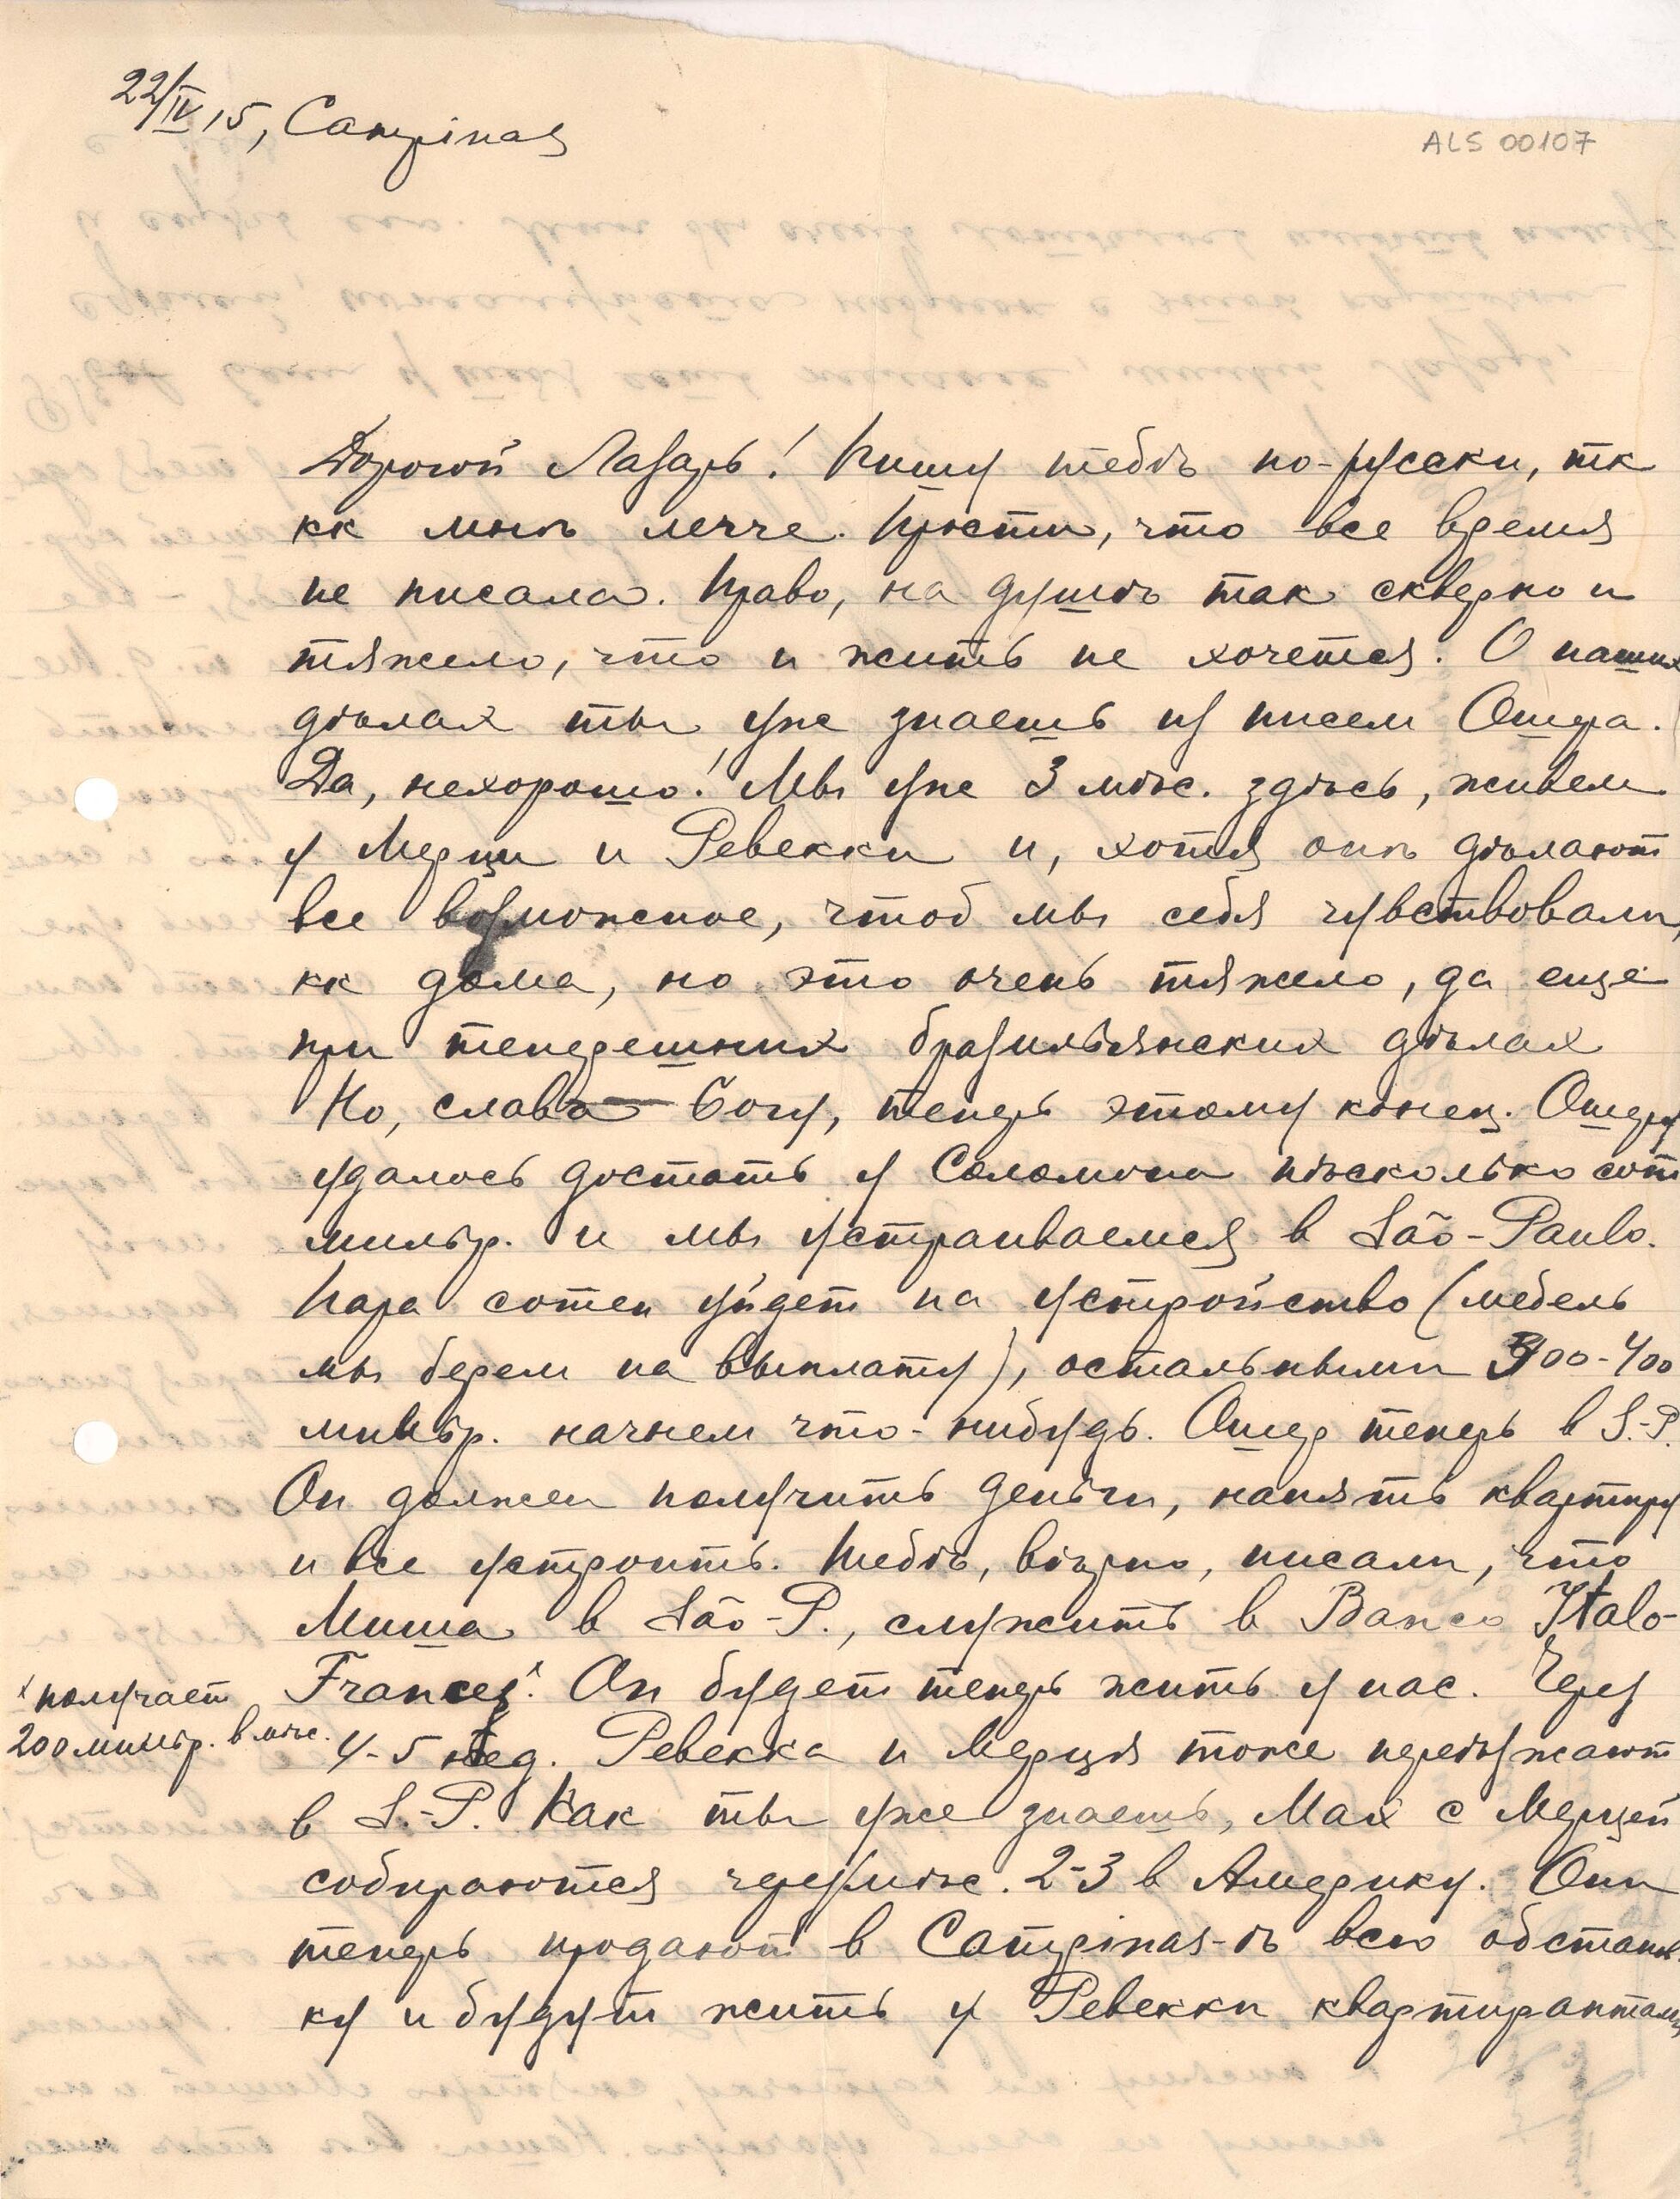 22/IV 15, Campinas
ALS 00107
Дорогой Лазарь! Пишу тебѣ по-русски, тк
кк мнѣ легче. Прости, что все время
не писала. Право, на душѣ так скверно и
тяжело, что и жить не хочется. О наших
дѣлах ты уже знаешь из писем Ошера.
Да, нехорошо! Мы уже 3 мѣс. здѣсь, живем
у Мерци и Ревекки и, хотя онѣ дѣлают
все возможное, чтоб мы себя чувствовали,
кк дома, но это очень тяжело, да еще
при теперешних бразильянских дѣлах
Но, слава Богу, теперь этому конец. Ошеру
удалось достать у Соломона нѣсколько сот
мильр. и мы устраиваемся в São-Paulo.
Пара сотен уйдет на устройство (мебель
мы берем на выплату), остальными 300-400
мильр. начнем что-нибудь. Ошер теперь в S.-P.
Он должен получить деньги, нанять квартиру
и все устроить. Тебѣ, вѣрно, писали, что
Миша в São-P., служить в Banco Italo-
Francez.ˣ Он будет теперь жить у нас. Через
ˣ получает
200 мильр. в мѣс.
4-5 нед. Ревекка и Мерця тоже переѣзжают
в S.-P. Как ты уже знаешь, Мах с Мерцей
собираются через мѣс. 2-3 в Америку. Они
теперь продают в Campinas-ѣ всю обстанов-
ку и будут жить у Ревекки квартирантами